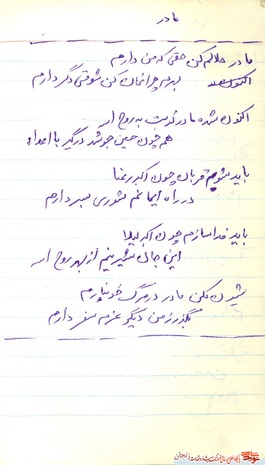 مادر
مادر حلالم کن حقی که من دارم
اکنون
بدرم چراغان کن شوقی دگر دارم
اکنون شده مادر نوبت به روح ا...
هم چون حسین جوشد درگیر با اعداء
باید شوم قربان چون اکبر رعنا
در راه ایمانم شوری بسر دارم
باید فدا سازم چون اکبر لیلا
این جان شیرینم از بهر روح ا...
شیون مکن مادر در مرگ خونبارم
بگذر ز من دیگر عزم سفر دارم